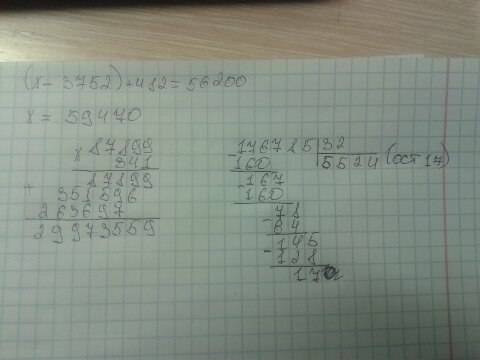 (x - 3752) + 482 = 56200
x = 59470
x 87899
341
87899
+ 351596
263697
29973559
- 176785 | 32
160 5524 (ост 17)
- 167
- 160
- 78
64
- 145
128
17